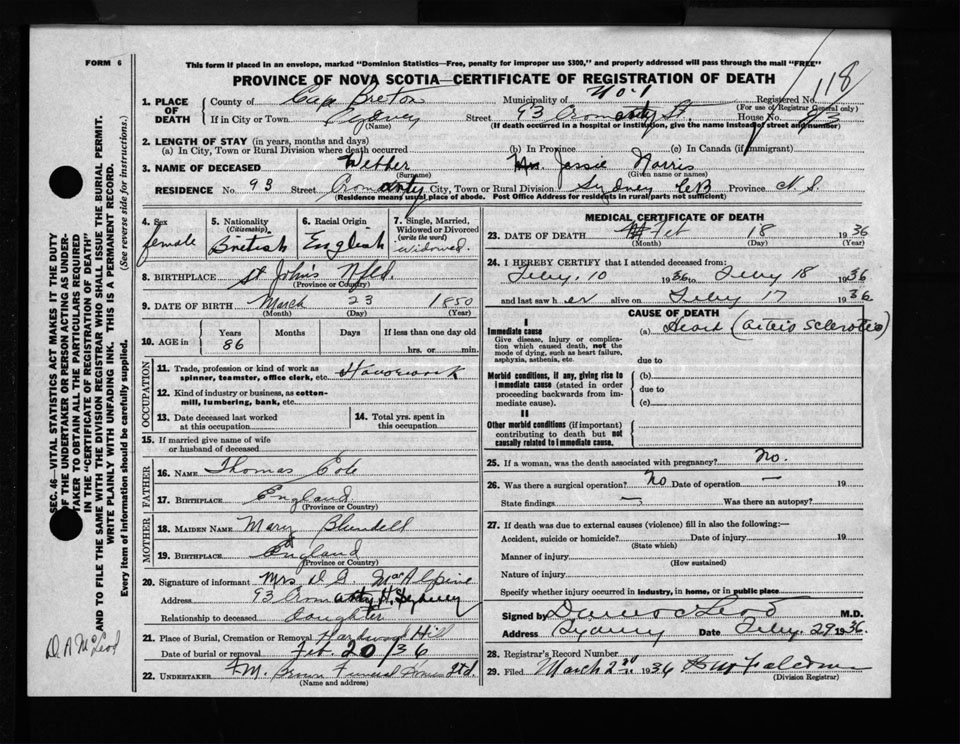 FORM 6
This form if placed in an envelope, marked "Dominion Statistics—Free, penalty for improper use $300," and properly addressed will pass through the mail "FREE"
PROVINCE OF NOVA SCOTIA—CERTIFICATE OF REGISTRATION OF DEATH
118
1. PLACE OF DEATH
County of Cape Breton
Municipality of No. 1
Registered No.
(For use of Registrar General only)
If in City or Town Sydney
(Name)
Street 93 Cromarty St.
House No. 93
(If death occurred in a hospital or institution, give the name instead of street and number)
2. LENGTH OF STAY (in years, months and days)
(a) In City, Town or Rural Division where death occurred
(b) In Province
(c) In Canada (if immigrant)
3. NAME OF DECEASED Webber Mrs. Jessie Norris
(Surname)
(Given name or names)
RESIDENCE No. 93 Street Cromarty City, Town or Rural Division Sydney CB Province N.S.
(Residence means usual place of abode. Post Office Address for residents in rural parts not sufficient)
4. Sex
female
5. Nationality
(Citizenship)
British
6. Racial Origin
English
7. Single, Married, Widowed or Divorced
(write the word)
widowed.
8. BIRTHPLACE St John's Nfld.
(Province or Country)
9. DATE OF BIRTH March 23 1850
(Month) (Day) (Year)
10. AGE in
Years
86
Months
Days
If less than one day old
hrs. or min.
OCCUPATION
11. Trade, profession or kind of work as spinner, teamster, office clerk, etc. Housework
12. Kind of industry or business, as cotton-mill, lumbering, bank, etc.
13. Date deceased last worked at this occupation
14. Total yrs. spent in this occupation
15. If married give name of wife or husband of deceased
FATHER
16. NAME Thomas Cole
17. BIRTHPLACE England
(Province or Country)
MOTHER
18. MAIDEN NAME Mary Blundell
19. BIRTHPLACE England
(Province or Country)
20. Signature of informant Mrs D G MacAlpine
Address 93 Cromarty St. Sydney
Relationship to deceased daughter
21. Place of Burial, Cremation or Removal Hardwood Hill
Date of burial or removal Feb. 20/36
22. UNDERTAKER F.M. Brown Funeral Homes Ltd.
(Name and address)
MEDICAL CERTIFICATE OF DEATH
23. DATE OF DEATH Feb 18 1936
(Month) (Day) (Year)
24. I HEREBY CERTIFY that I attended deceased from:
Feby. 10 1936 to Feby 18 1936
and last saw her alive on Feby 17 1936
CAUSE OF DEATH
I
Immediate cause
Give disease, injury or complication which caused death, not the mode of dying, such as heart failure, asphyxia, asthenia, etc.
(a) Heart (Arterio Sclerotic)
due to
Morbid conditions, if any, giving rise to immediate cause (stated in order proceeding backwards from immediate cause).
(b)
due to
(c)
II
Other morbid conditions (if important) contributing to death but not causally related to immediate cause.
25. If a woman, was the death associated with pregnancy? No.
26. Was there a surgical operation? No Date of operation — 19
State findings — Was there an autopsy?
27. If death was due to external causes (violence) fill in also the following:—
Accident, suicide or homicide? Date of injury 19
(State which)
Manner of injury
(How sustained)
Nature of injury
Specify whether injury occurred in industry, in home, or in public place
Signed by Dan McLeod M.D.
Address Sydney Date Feby. 29 1936.
28. Registrar's Record Number
29. Filed March 2nd 1936
(Division Registrar)
SEC. 46—VITAL STATISTICS ACT MAKES IT THE DUTY
OF THE UNDERTAKER OR PERSON ACTING AS UNDER-
TAKER TO OBTAIN ALL THE PARTICULARS REQUIRED
IN THE "CERTIFICATE OF REGISTRATION OF DEATH"
AND TO FILE THE SAME WITH THE DIVISION REGISTRAR WHO SHALL ISSUE THE BURIAL PERMIT.
WRITE PLAINLY WITH UNFADING INK. THIS IS A PERMANENT RECORD.
Every item of information should be carefully supplied. (See reverse side for instructions.)
D. A. McLeod